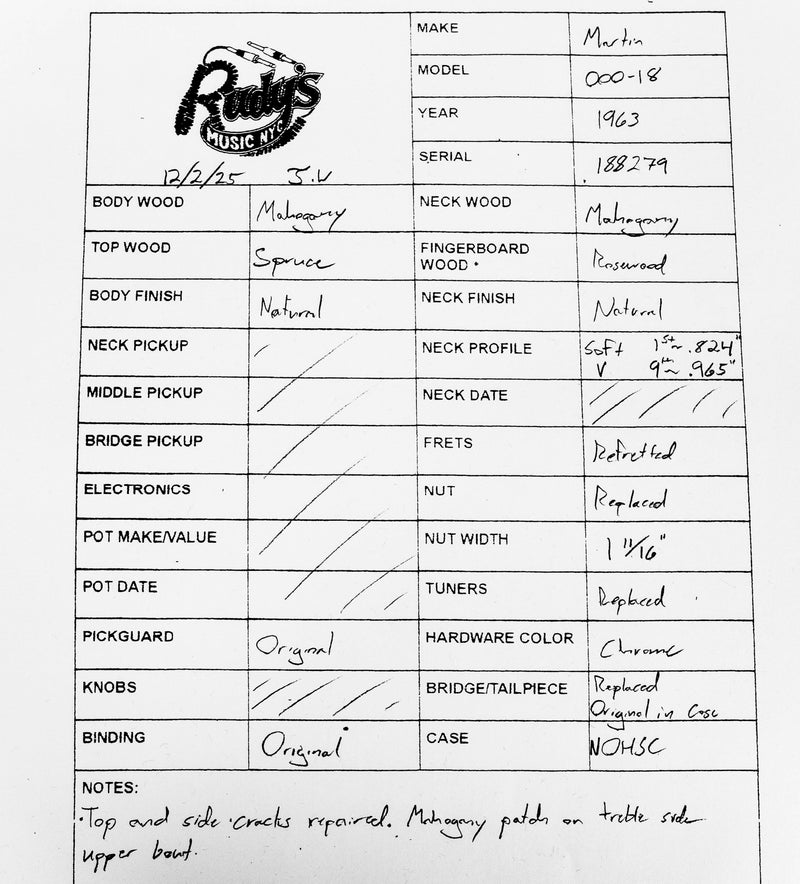 Rudy's
MUSIC NYC
12/2/25 J.W
MAKE Martin
MODEL 000-18
YEAR 1963
SERIAL 188279
BODY WOOD Mahogany NECK WOOD Mahogany
TOP WOOD Spruce FINGERBOARD WOOD Rosewood
BODY FINISH Natural NECK FINISH Natural
NECK PICKUP NECK PROFILE Soft V 1st ~ .824" 9th ~ .965"
MIDDLE PICKUP NECK DATE
BRIDGE PICKUP FRETS Refretted
ELECTRONICS NUT Replaced
POT MAKE/VALUE NUT WIDTH 1 11/16"
POT DATE TUNERS Replaced
PICKGUARD Original HARDWARE COLOR Chrome
KNOBS BRIDGE/TAILPIECE Replaced Original in Case
BINDING Original CASE NOHSC
NOTES:
·Top and side cracks repaired. Mahogany patch on treble side
upper bout.